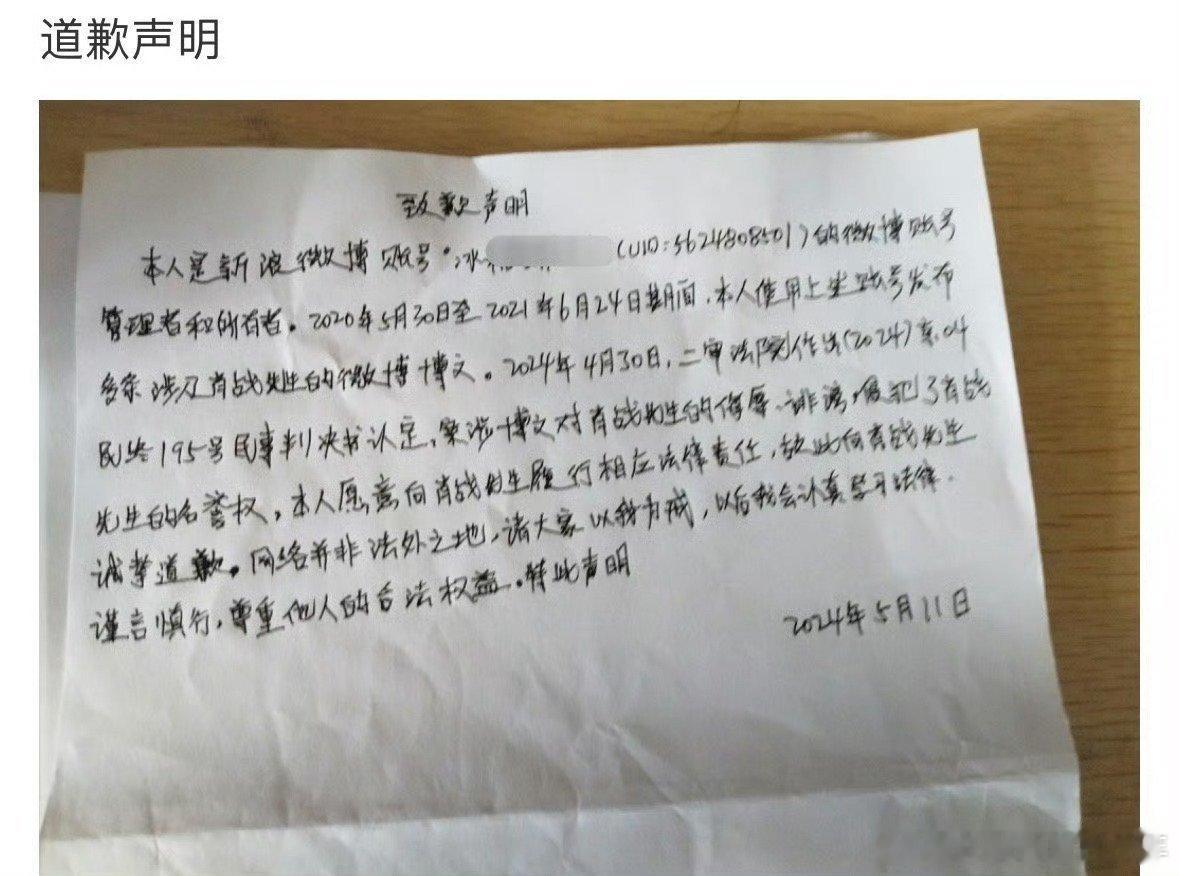 道歉声明
致歉声明
本人是新浪微博账号:冰 (UID:5624808501)的微博账号
管理者和所有者。2020年5月30日至2021年6月24日期间,本人使用上述账号发布
多条涉及肖战先生的微博博文。2024年4月30日,二审法院作出(2024)京04
民终195号民事判决书认定,案涉博文对肖战先生的侮辱、诽谤,侵犯了肖战
先生的名誉权,本人愿意向肖战先生履行相应法律责任,就此向肖战先生
诚挚道歉。网络并非法外之地,请大家以我为戒,以后我会认真学习法律.
谨言慎行,尊重他人的合法权益。特此声明
2024年5月11日